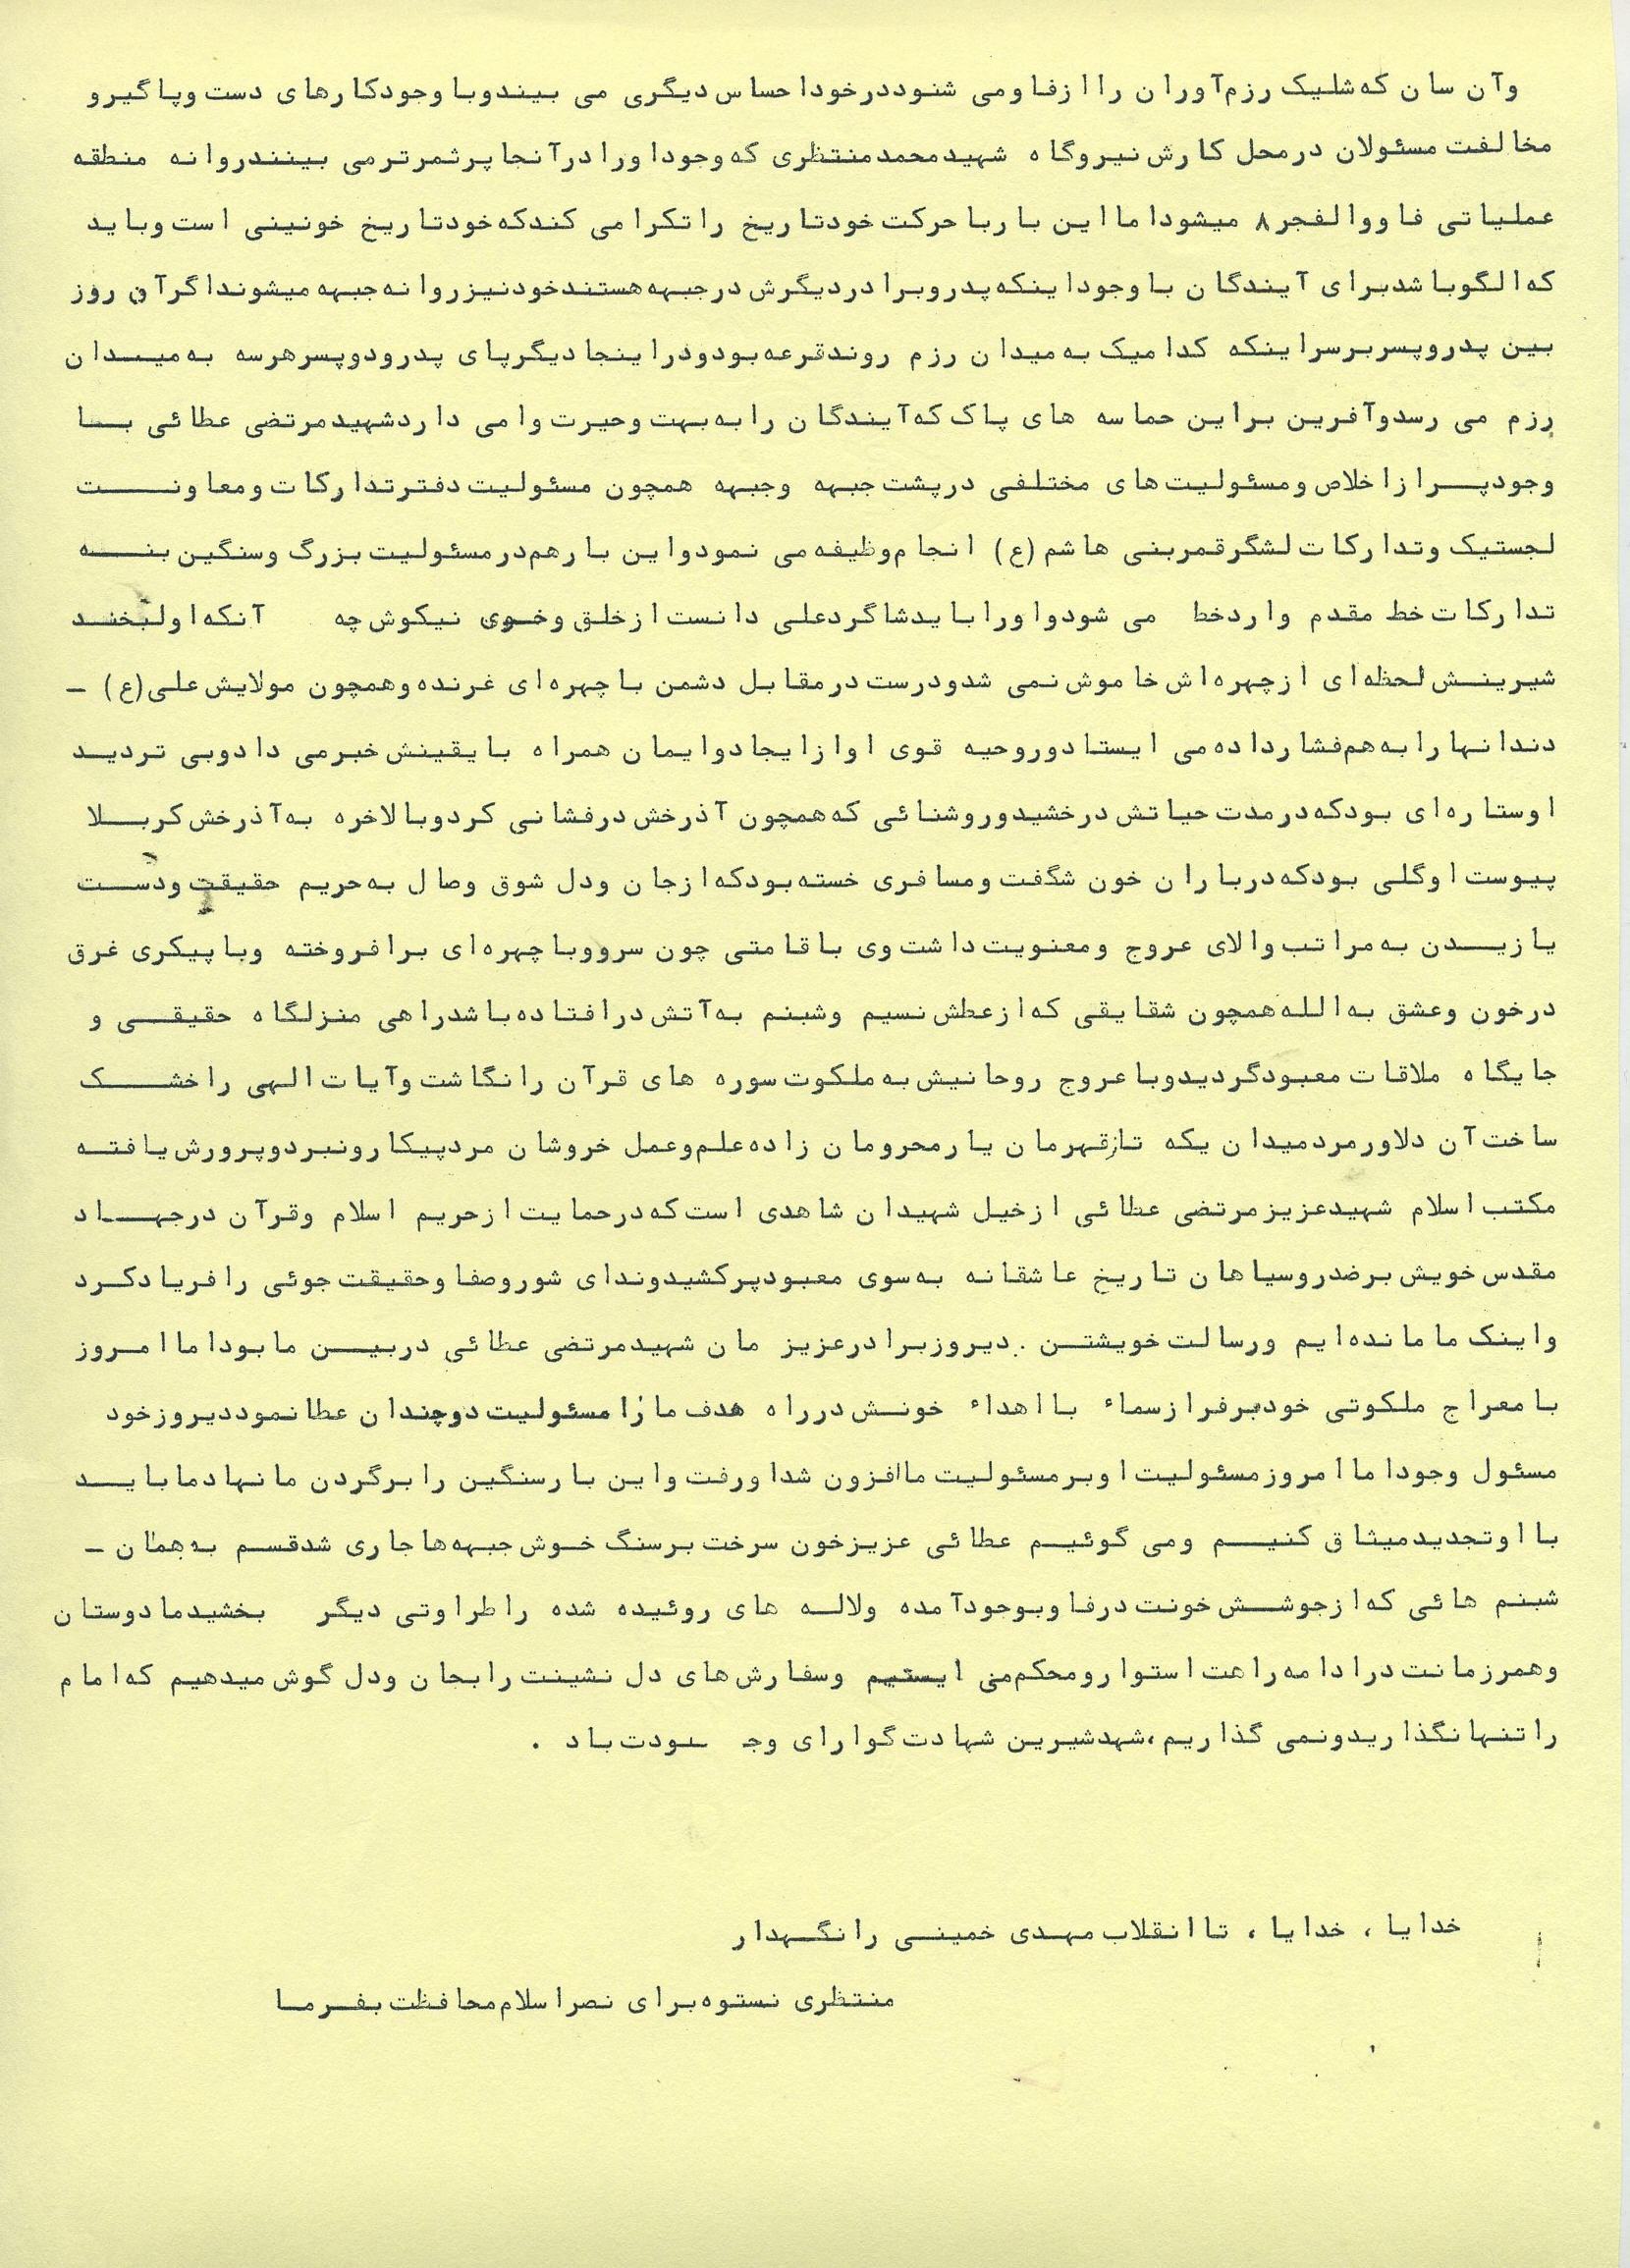 وآن سان که شلیک رزم‌آوران را از فاو می شنود در خود احساس دیگری می بیند و با وجود کارهای دست و پا گیر و
مخالفت مسئولان در محل کارش نیروگاه شهید محمد منتظری که وجود او را در آنجا پرثمرتر می بینند روانه منطقه
عملیاتی فاو والفجر ۸ میشود اما این بار با حرکت خود تاریخ را تکرا می کند که خود تاریخ خونینی است و باید
که الگو باشد برای آیندگان با وجود اینکه پدر و برادر دیگرش در جبهه هستند خود نیز روانه جبهه میشوند اگر آن روز
بین پدر و پسر بر سر اینکه کدامیک به میدان رزم روند قرعه بود و در اینجا دیگر پای پدر و دو پسر هر سه به میدان
رزم می رسد و آفرین بر این حماسه های پاک که آیندگان را به بهت و حیرت وا می دارد شهید مرتضی عطائی با
وجود پر از اخلاص و مسئولیت های مختلفی در پشت جبهه وجبهه همچون مسئولیت دفتر تدارکات و معاونت
لجستیک وتدارکات لشگر قمر بنی هاشم (ع) انجام وظیفه می نمود و این بار هم در مسئولیت بزرگ وسنگین بنه
تدارکات خط مقدم وارد خط می شود و او را باید شاگرد علی دانست از خلق و خوی نیکوش چه آنکه او لبخند
شیرینش لحظه ای از چهره اش خاموش نمی شد و درست در مقابل دشمن با چهره ای غرنده و همچون مولایش علی (ع) –
دندانها را به هم فشار داده می ایستاد و روحیه قوی او از ایجاد و ایمان همراه با یقینش خبر می داد و بی تردید
او ستاره ای بود که در مدت حیاتش درخشید و روشنائی که همچون آذرخش درفشانی کرد و بالاخره به آذرخش کربلا
پیوست او گلی بود که در باران خون شگفت و مسافری خسته بود که از جان ودل شوق وصال به حریم حقیقت و دست
یازیدن به مراتب والای عروج ومعنویت داشت وی با قامتی چون سرو و با چهره ای برافروخته وبا پیکری غرق
در خون وعشق به الله همچون شقایقی که از عطش نسیم وشبنم به آتش در افتاده باشد راهی منزلگاه حقیقی و
جایگاه ملاقات معبود گردید و با عروج روحانیش به ملکوت سوره های قرآن را نگاشت و آیات الهی را خشک
ساخت آن دلاور مرد میدان یکه تاز قهرمان یار محرومان زاده علم و عمل خروشان مرد پیکار و نبرد و پرورش یافته
مکتب اسلام شهید عزیز مرتضی عطائی از خیل شهیدان شاهدی است که در حمایت از حریم اسلام وقرآن در جهاد
مقدس خویش بر ضد روسیاهان تاریخ عاشقانه به سوی معبود پر کشید و ندای شور و صفا و حقیقت جوئی را فریاد کرد
و اینک ما مانده ایم ورسالت خویشتن . دیروز برادر عزیز مان شهید مرتضی عطائی در بین ما بود اما امروز
با معراج ملکوتی خود بر فراز سماء با اهداء خونش در راه هدف ما را مسئولیت دو چندان عطا نمود دیروز خود
مسئول وجود اما امروز مسئولیت او بر مسئولیت ما افزون شد او رفت و این بار سنگین را بر گردن ما نهاد ما باید
با او تجدید میثاق کنیم ومی گوئیم عطائی عزیز خون سرخت بر سنگ خوش جبهه ها جاری شد قسم به همان –
شبنم هائی که از جوشش خونت در فاو بوجود آمده ولاله های روئیده شده را طراوتی دیگر بخشید ما دوستان
وهمرزمانت در ادامه راهت استوار و محکم می ایستیم وسفارش های دل نشینت را بجان ودل گوش میدهیم که امام
را تنها نگذارید و نمی گذاریم، شهد شیرین شهادت گوارای وجودت باد .
خدایا ، خدایا ، تا انقلاب مهدی خمینی را نگهدار
منتظری نستوه برای نصر اسلام محافظت بفرما